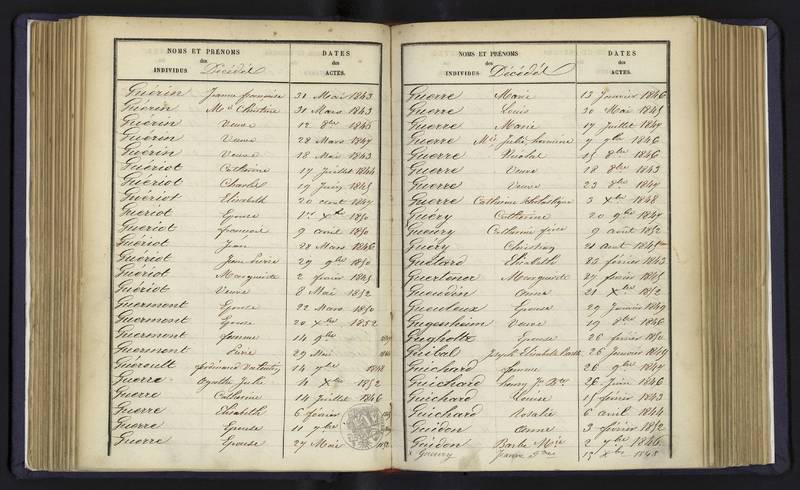 NOMS ET PRÉNOMS DATES
des des
INDIVIDUS Décédés ACTES.
Guérin Jeanne françoise 31 Mai 1843
Guérin Me Christine 31 Mars 1843
Guérin Veuve 12 8bre 1846
Guérin Veuve 28 Mars 1847
Guérin Veuve 18 Mai 1843
Guériot Catherine 17 Juillet 1844
Guériot Charles 19 Juin 1845
Guériot Elisabeth 20 aout 1847
Guériot Epouse 1er Xbre 1850
Guériot françois 9 avril 1850
Guériot Jean 28 Mars 1846
Guériot Jean Pierre 29 9bre 1850
Guériot Marguerite 2 fevrier 1845
Guériot Veuve 8 Mai 1852
Guermont Epouse 22 Mars 1850
Guermont Epouse 20 Xbre 1852
Guermont femme 14 9bre
Guermont Pierre 29 Mai
Guéroult ferdinand Valentin 14 7bre 1848
Guerre Agathe Julie 4 Xbre 1852
Guerre Catherine 14 Juillet 1846
Guerre Elisabeth 6 fevrier
Guerre Epouse 11 7bre
Guerre Epouse 27 Mai 1852
NOMS ET PRÉNOMS DATES
des des
INDIVIDUS Décédés ACTES.
Guerre Marie 13 Janvier 1846
Guerre Louis 30 Mai 1845
Guerre Marie 17 Juillet 1847
Guerre Me Julie 7 7bre 1846
Guerre Nicolas 15 8bre 1846
Guerre Veuve 18 8bre 1843
Guerre Veuve 23 8bre 1847
Guerre Catherine Scholastique 3 Xbre 1848
Guéry Catherine 20 9bre 1847
Guéury Catherine 9 aout 1852
Guéry Christine 21 aout 1845
Guétard Elisabeth 23 février 1843
Marguerite 27 fevrier 1845
Gueudin anne 21 Xbre 1852
Gueuleux Epouse 29 Janvier 1849
Gugenheim Veuve 19 8bre 1846
Epouse 26 fevrier 1850
Guibal Elisabeth 26 Janvier 1849
Guichard femme 26 9bre 1847
Guichard henry 26 Juin 1846
Guichard Louise 15 fevrier 1843
Guichard Rosalie 6 avril 1844
Guidon anne 3 fevrier 1852
Guidon Barbe Mie 2 7bre 1846
Jeanne 13 Xbre 1845